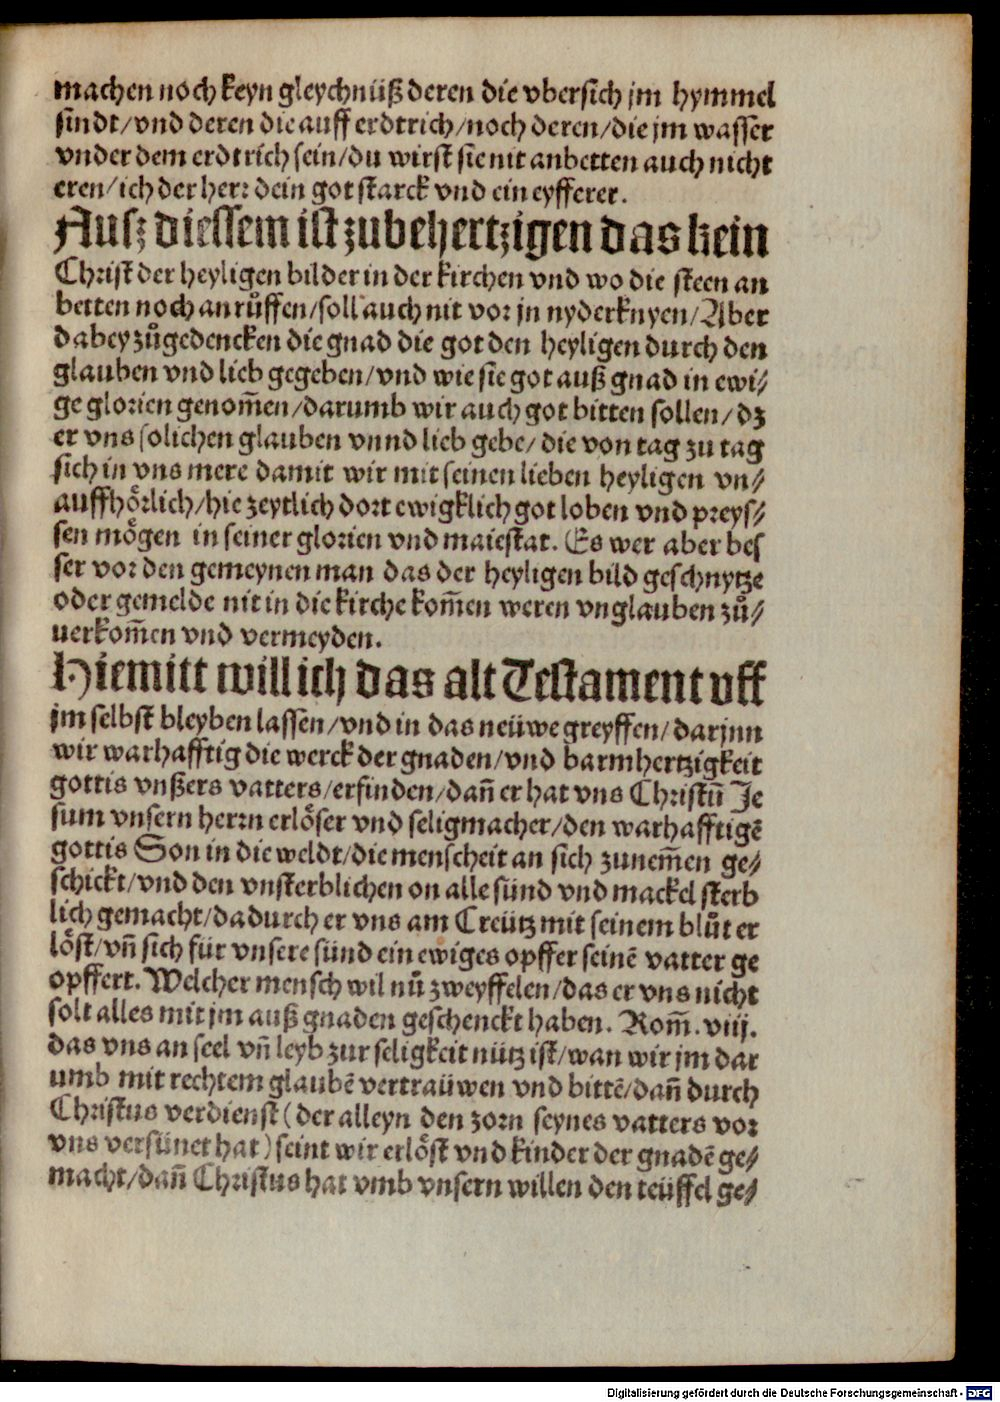 machen noch keyn gleychnüß deren die vbersich jm hymmel
sindt/vnd deren die auff erdtrich/noch deren/die jm wasser
vnder dem erdtrich sein/du wirst sie nit anbetten auch nicht
eren/ich der herr dein got starck vnd ein eyfferer.
Ausz diessem ist zubehertzigen das kein
Christ der heyligen bilder in der kirchen vnd wo die steen an
betten noch anrůffen/soll auch nit vor jn nyderknyen/Aber
dabey zůgedencken die gnad die got den heyligen durch den
glauben vnd lieb gegeben/vnd wie sie got auß gnad in ewi⸗
ge glorien genom̄en/darumb wir auch got bitten sollen/dz
er vns solichen glauben vnnd lieb gebe/die von tag zu tag
sich in vns mere damit wir mit seinen lieben heyligen vn⸗
auffhoͤrlich/hie zeytlich dort ewigklich got loben vnd preys⸗
sen moͤgen in seiner glorien vnd maiestat. Es wer aber bes
ser vor den gemeynen man das der heyligen bild geschnytze
oder gemelde nit in die kirche kom̄en weren vnglauben zů⸗
uerkom̄en vnd vermeyden.
Hiemitt will ich das alt Testament vff
jm selbst bleyben lassen/vnd in das neüwe greyffen/darjnn
wir warhafftig die werck der gnaden/vnd barmhertzigkeit
gottis vnßers vatters/erfinden/dan̄ er hat vns Christū Je
sum vnsern herrn erloͤser vnd seligmacher/den warhafftigē
gottis Son in die weldt/die menscheit an sich zunem̄en ge⸗
schickt/vnd den vnsterblichen on alle sünd vnd mackel sterb
lich gemacht/dadurch er vns am Creütz mit seinem blůt er
loͤst/vn̄ sich für vnsere sünd ein ewiges opffer seinē vatter ge
opffert. Welcher mensch wil nů zweyffelen/das er vns nicht
solt alles mit jm auß gnaden geschenckt haben. Rom̄. viij.
das vns an seel vn̄ leyb zur seligkeit nütz ist/wan wir jm dar
umb mit rechtem glaubē vertraüwen vnd bittē/dan̄ durch
Christus verdienst (der alleyn den zorn seynes vatters vor
vns versünet hat) seint wir erloͤst vnd kinder der gnadē ge⸗
macht/dan̄ Christus hat vmb vnsern willen den teüffel ge⸗
Digitalisierung gefördert durch die Deutsche Forschungsgemeinschaft · DFG